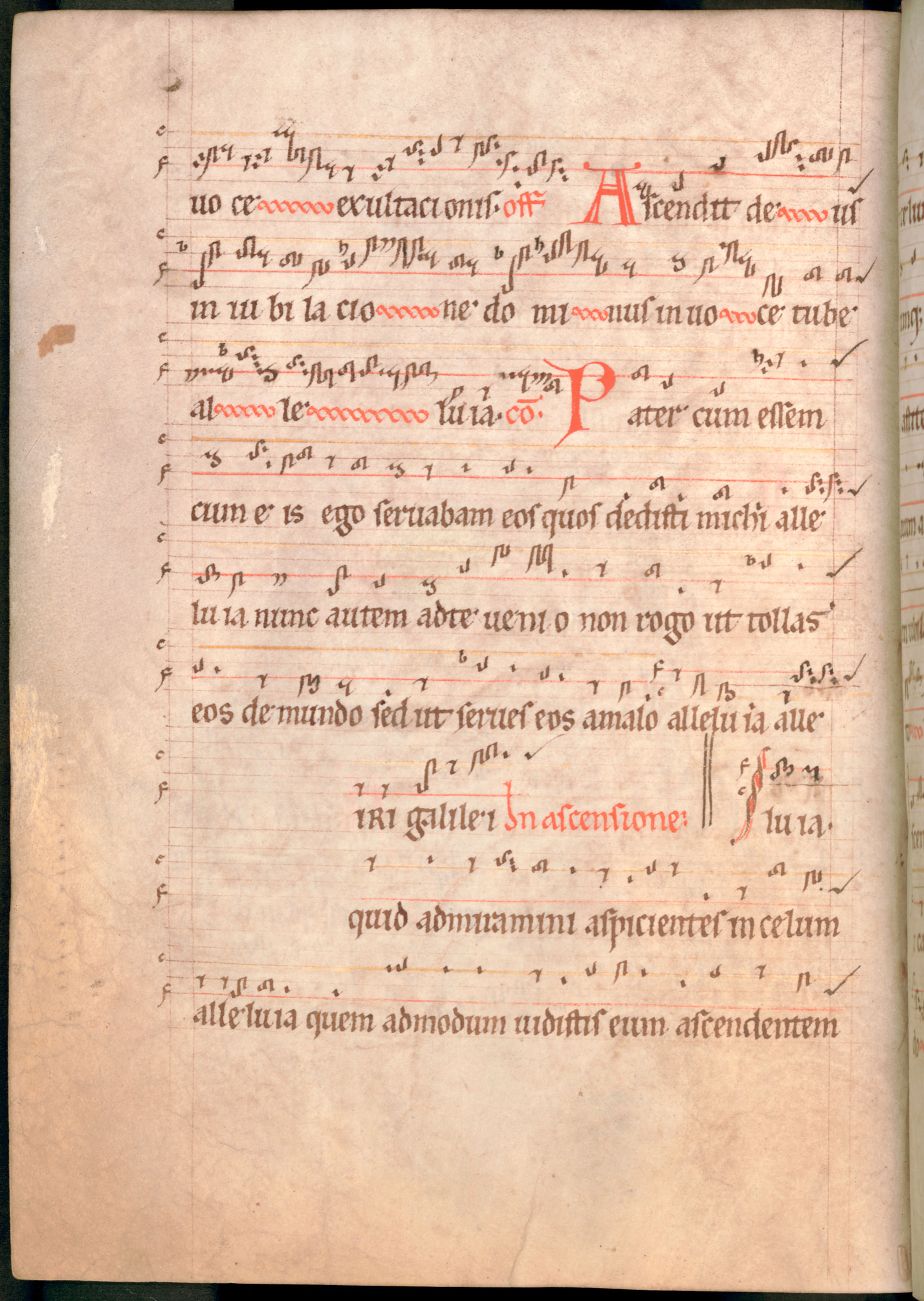 uo ce exultacionis· off Ascendit de us
in iu bi la cio ne do mi nus in uo ce tube
al le lu ia· cō· Pater cum essem
cum e is ego seruabam eos quos dedisti michi alle
lu ia nunc autem ad te uenio non rogo ut tollas
eos de mundo sed ut serues eos a malo alleluia alle
iri galilei In ascensione: luia·
quid admiramini aspicientes in celum
alleluia quem admodum uidistis eum ascendentem